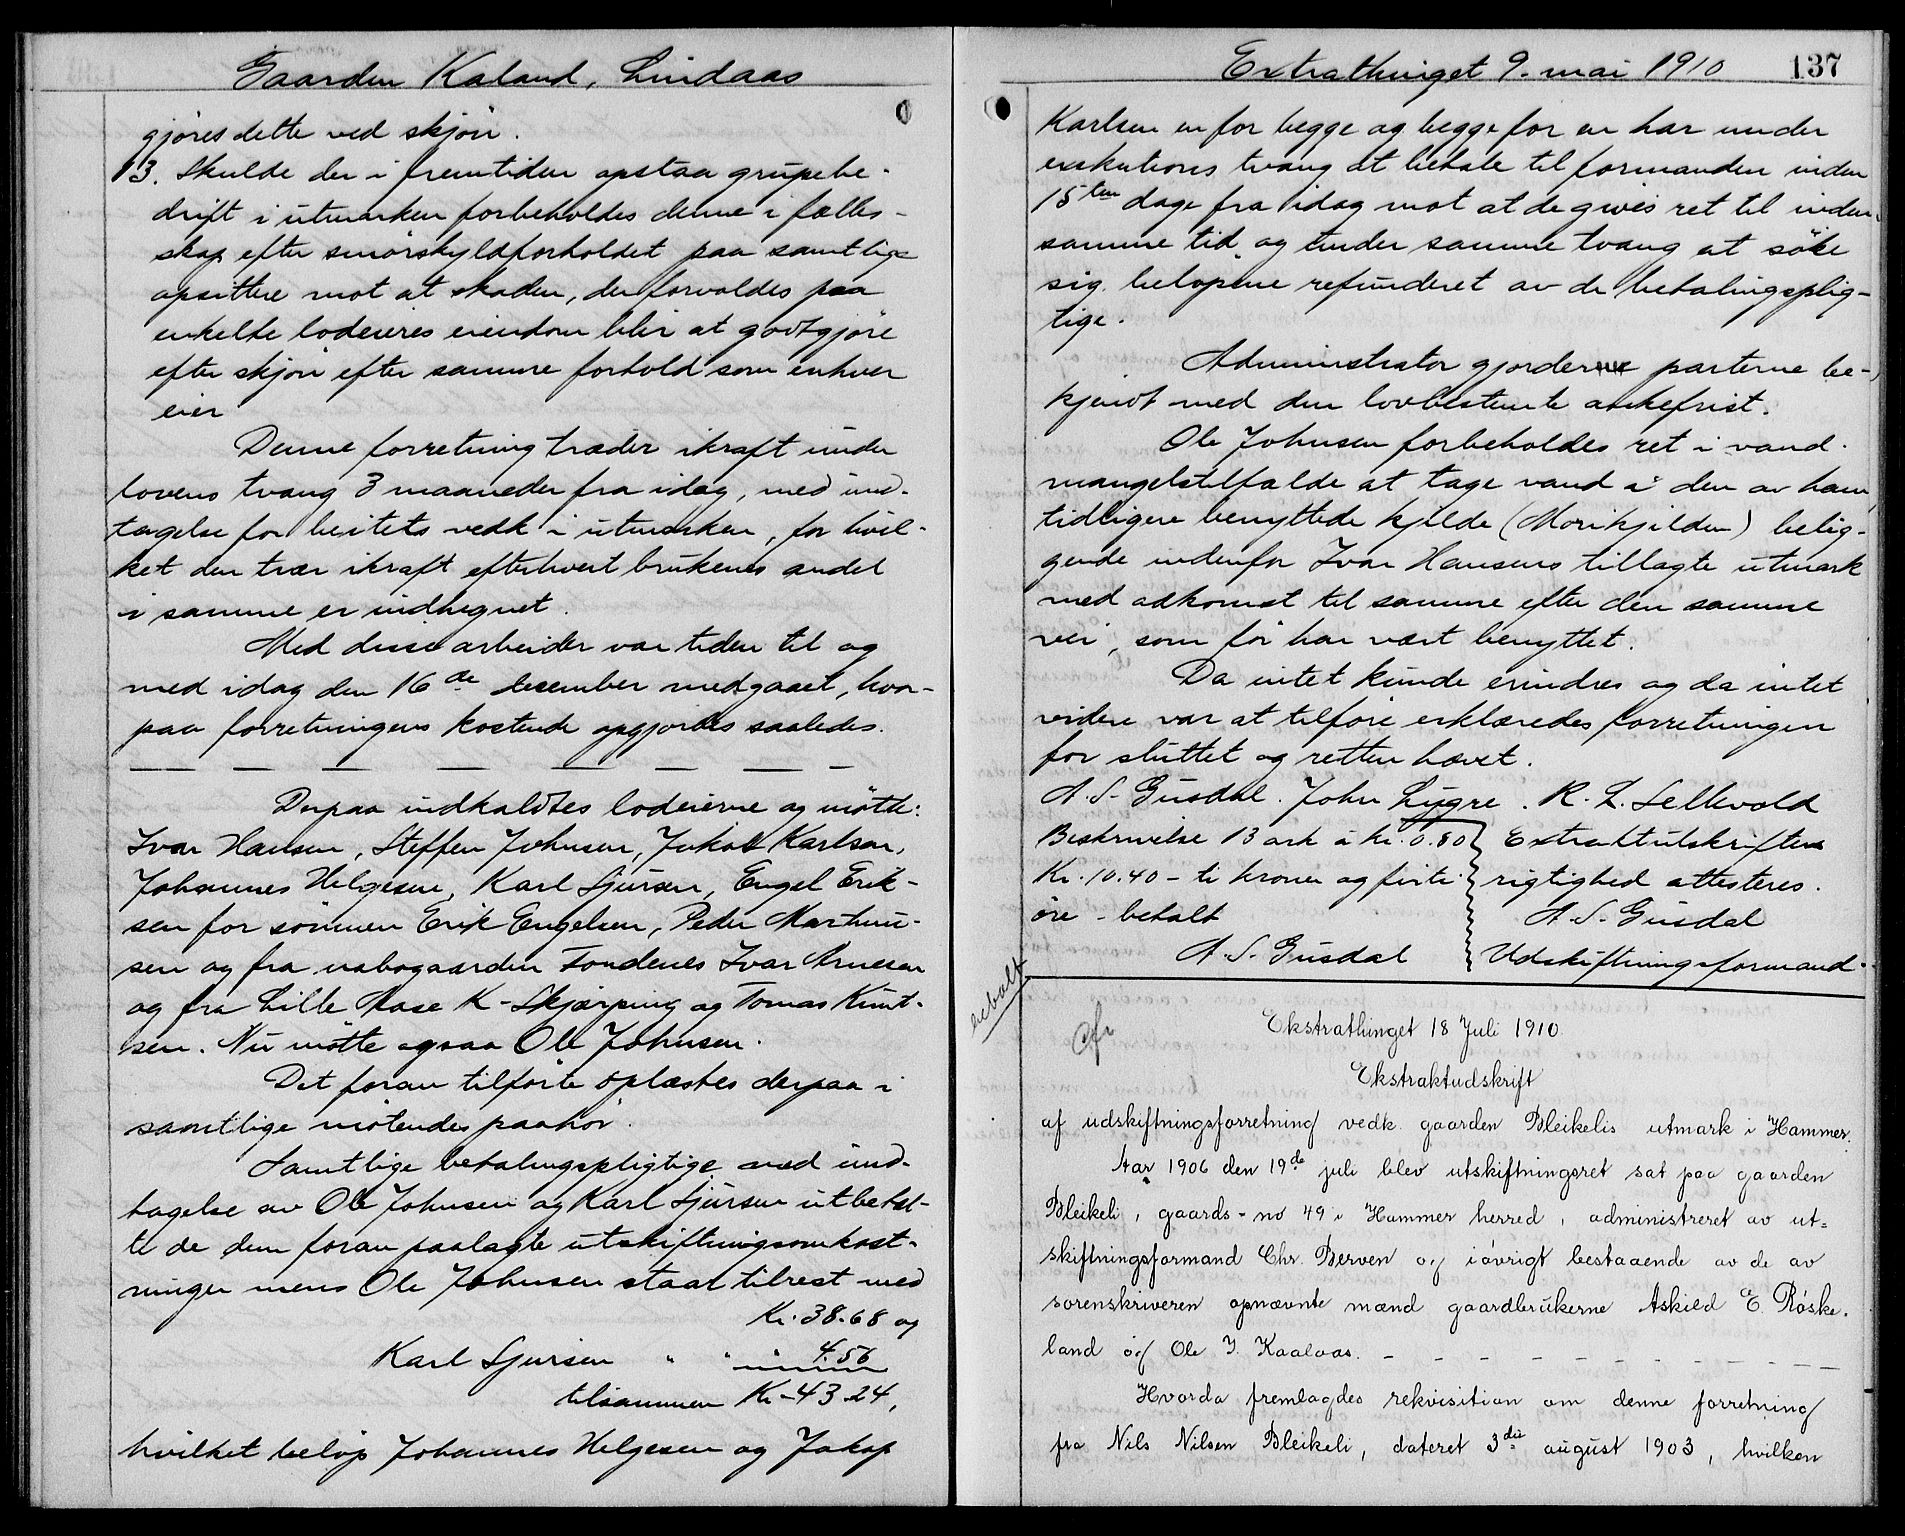 Gaarden Kaland, Lindaas
gjøres dette ved skjøn.
13. Skulde der i fremtiden opstaa grupebe-
drift i utmarken forbeholdes denne i fælles-
skap efter smørskyldforholdet paa samtlige
opsittere mot at skaden, der forvoldes paa
enkelte lodeieres eiendom blir at godtgjøre
efter skjøn efter samme forhold som enhver
eier
Denne forretning træder ikraft under
lovens tvang 3 maaneder fra idag, med und-
tagelse for beitets vedk i utmarken, for hvil-
ket den trær ikraft efterhvert brukenes andel
i samme er indhegnet.
Med disse arbeider var tiden til og
med idag den 16de december medgaaet, hvor-
paa forretningens kostende opgjordes saaledes.
— — — — — — — —
Derpaa indkaldtes lodeierne og møtte:
Ivar Hansen, Steffen Johnsen, Jakob Karlsen,
Johannes Helgesen, Karl Sjursen, Engel Erik-
sen for sønnen Erik Engelsen, Peder Martinu-
sen og fra nabogaarden Fondenes Ivar Arnesen
og fra Lille Aase K- Skjærping og Tomas Knut-
sen. Nu møtte ogsaa Ole Johnsen.
Det foran tilførte oplæstes derpaa i
samtlige møtendes paahør.
Samtlige betalingspligtige med und-
tagelse av Ole Johnsen og Karl Sjursen utbetal-
te de dem foran paalagte utskiftningsomkost-
ninger mens Ole Johnsen staar tilrest med
Kr. 38.68 og
Karl Sjursen " " 4.56
tilsammen Kr - 43.24,
hvilket beløp Johannes Helgesen og Jakop
Extrathinget 9. mai 1910 137
Karlsen en for begge og begge for en har under
exekutions tvang at betale til formanden inden
15ten dage fra idag mot at de gives ret til inden
samme tid og under samme tvang at søke
sig beløpene refunderet av de betalingsplig-
tige.
Administrator gjorde parterne be-
kjendt med den lovbestemte ankefrist.
Ole Johnsen forbeholdes ret i vand-
mangelstilfælde at tage vand i den av ham
tidligere benyttede kjelde (Morikjelden) belig-
gende indenfor Ivar Hansens tillagte utmark
med adkomst til samme efter den samme
vei, som før har vært benyttet.
Da intet kunde erindres og da intet
videre var at tilføre erklæredes forretningen
for sluttet og retten hævet.
A. S. Gusdal. John Lygre. R. L. Sellevold
Beskrivelse 13 ark à kr. 0.80
Kr. 10.40 - ti kroner og firti
øre - betalt
A. S. Gusdal
Extraktutskriftens
rigtighed attesteres.
A. S. Gusdal
Udskiftningsformand.
betalt
Ekstrathinget 18 Juli 1910
Ekstraktudskrift
af udskiftningsforretning vedk. gaarden Bleikelis utmark i Hammer.
Aar 1906 den 19de juli blev utskiftningsret sat paa gaarden
Bleikeli, gaards-no 49 i Hammer herred, administreret av ut=
skiftningsformand Chr. Berven og iøvrigt bestaaende av de av
sorenskriveren opnævnte mænd gaardbrukerne Askild E. Røske-
land og Ole I. Kaalaas. - - - - - - - - - -
Hvorda fremlagdes rekvisition om denne forretning
fra Nils Nilsen Bleikeli, dateret 3die august 1903, hvilken